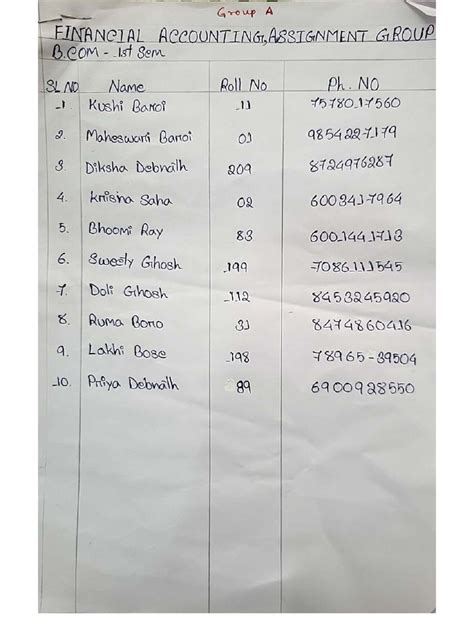 Group A
FINANCIAL ACCOUNTING, ASSIGNMENT GROUP
B.COM - 1st Sem
SL NO Name Roll No Ph. NO
1. Kushi Baroi 11 7578017560
2. Maheswari Baroi 01 9854227179
3. Diksha Debnath 209 8724976287
4. Krisna Saha 02 6003417964
5. Bhoomi Ray 83 6001441713
6. Sweety Ghosh 199 7086111545
7. Doli Ghosh 112 8453245920
8. Ruma Bono 31 8474860416
9. Lakhi Bose 198 78965-39504
10. Priya Debnath 89 6900928550